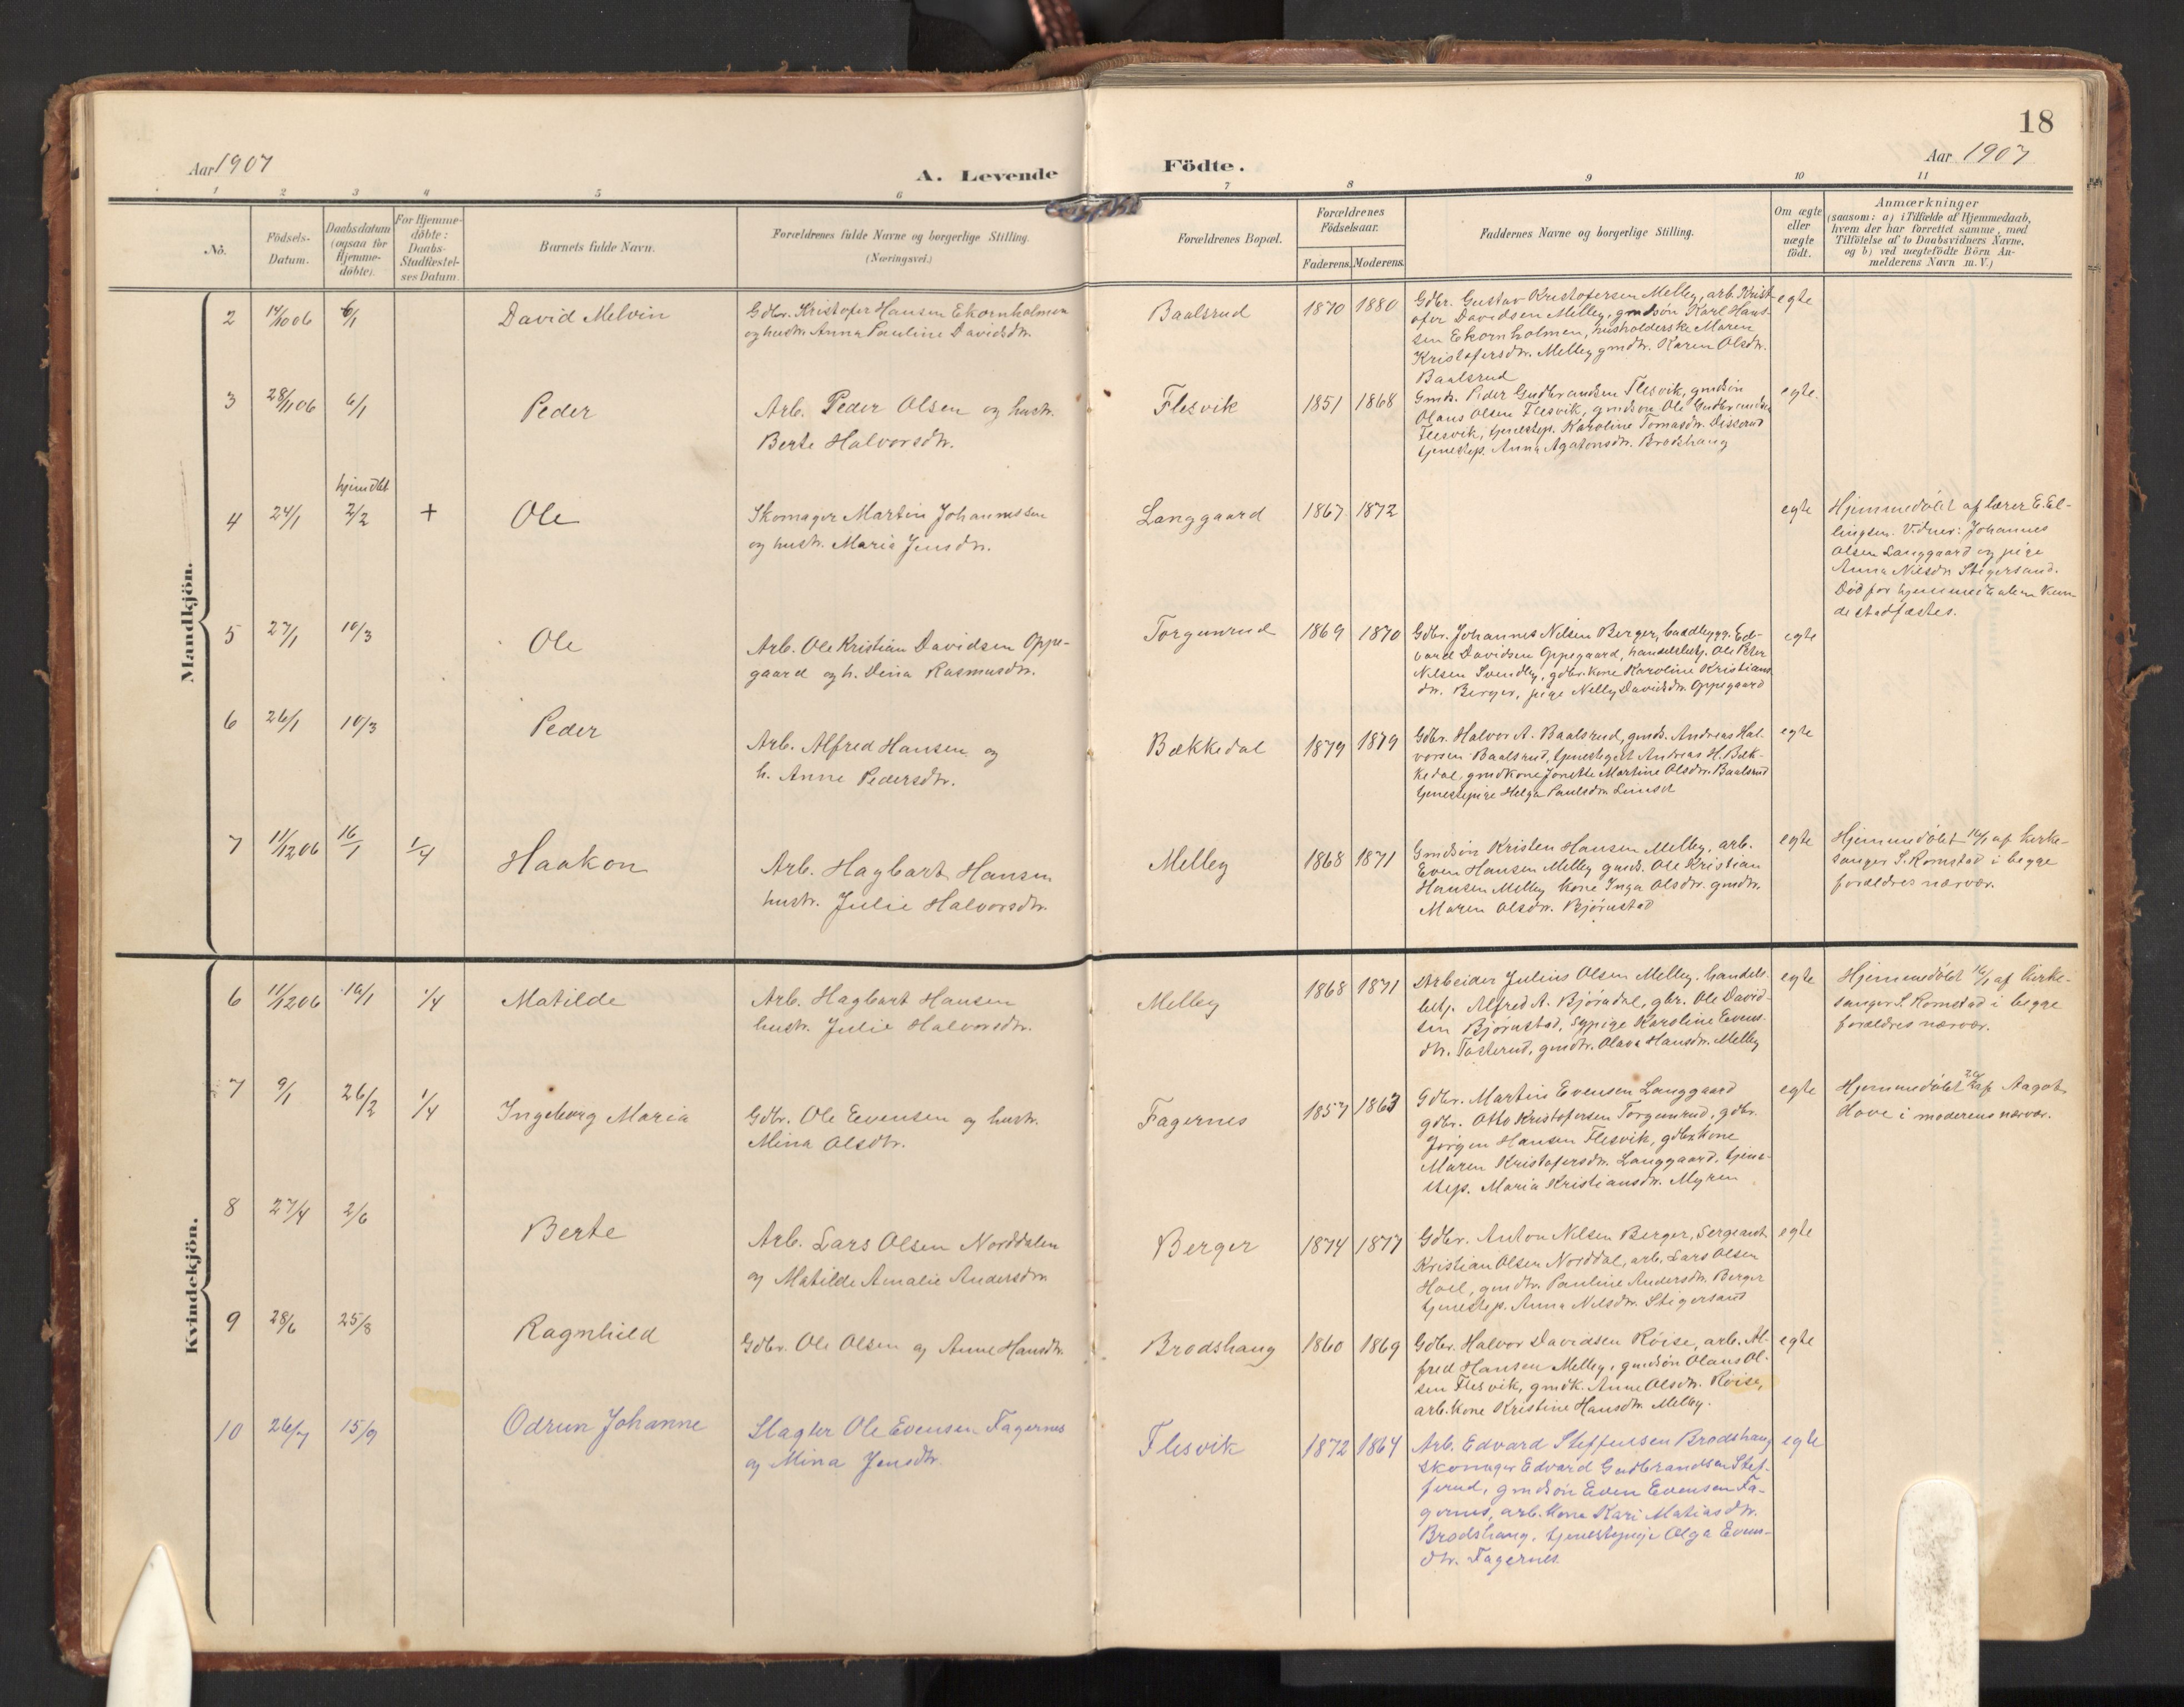 18
Aar 1907
A. Levende
Födte.
Aar 1907
1 2 3 4 5 6 7 8 9 10 11
No.
Födsels-
Datum.
Daabsdatum
(ogsaa for
Hjemme-
döbte).
For Hjemme-
döbte:
Daabs-
Stadfæstel-
ses Datum.
Barnets fulde Navn.
Forældrenes fulde Navne og borgerlige Stilling.
(Næringsvei.)
Forældrenes Bopæl.
Forældrenes
Födselsaar.
Faderens. Moderens.
Faddernes Navne og borgerlige Stilling.
Om ægte
eller
uægte
födt.
Anmærkninger
(saasom: a) i Tilfælde af Hjemmedaab,
hvem der har forrettet samme, med
Tilföielse af to Daabsvidners Navne,
og b) ved uægtefödte Börn An-
melderens Navn m. V.)
Mandkjön.
2 14/10 06 6/1 David Melvin
Gdbr. Kristofer Hansen Ekornholmen
og hustr. Anna Pauline Davidsdtr.
Baalsrud 1870 1880
Gdbr. Gustav Kristofersen Melby, arb. Krist-
ofer Davidsen Melby, gmdsøn Karl Han-
sen Ekornholmen, husholderske Maren
Kristofersdtr. Melby gmdtr. Karen Olsdtr.
Baalsrud
egte
3 28/11 06 6/1 Peder
Arb. Peder Olsen og hustr.
Berte Halvorsdtr.
Flesvik 1851 1868
Gmds. Peder Gudbrandsen Flesvik, gmdsøn
Olaus Olsen Flesvik, gmdsøn Ole Gudbrandsen
Flesvik, tjenestep. Karoline Tomasdtr. Disserud
tjenestep. Anna Agatonsdtr. Brodshaug
egte
hjemdbt
4 24/1 2/2 + Ole
Skomager Martin Johannessen
og hustr. Maria Jensdtr.
Langgaard 1867 1872
egte
Hjemmedøbt af lærer E. El-
lingsen. Vidner: Johannes
Olsen Langgaard og pige
Anna Nilsdtr Stigersand.
Død før hjemmedaaben kun-
de stadfæstes.
5 27/1 10/3 Ole
Arb. Ole Kristian Davidsen Oppe-
gaard og h. Dina Rasmusdtr.
Torgunrud 1869 1870
Gdbr. Johannes Nilsen Berger, baadbygg. Ed-
vard Davidsen Oppegaard, handelsbetj. Ole Peter
Nilsen Svendby, gdbr. kone Karoline Kristians-
dtr. Berger, pige Nelly Davidsdtr. Oppegaard
egte
6 26/1 10/3 Peder
Arb. Alfred Hansen og
h. Anne Pedersdtr.
Bækkedal 1879 1879
Gdbr. Halvor A. Baalsrud, gmds. Andreas Hal-
vorsen Baalsrud, tjenestegut Andreas H. Bæk-
kedal, gmdkone Jonette Martine Olsdtr. Baalsrud
tjenestepige Helga Paulsdtr
egte
7 11/12 06 16/1 1/4 Haakon
Arb. Hagbart Hansen
hustr. Julie Halvorsdtr.
Melby 1868 1871
Gmdsøn Kristen Hansen Melby, arb.
Even Hansen Melby gmds. Ole Kristian
Hansen Melby kone Inga Olsdtr. gmdtr.
Maren Olsdtr. Bjørnstad
egte
Hjemmedøbt 16/1 af kirke-
sanger S. Romstad i begge
forældres nærvær.
Kvindekjön.
6 11/12 06 16/1 1/4 Matilde
Arb. Hagbart Hansen
hustr. Julie Halvorsdtr.
Melby 1868 1871
Arbeider Julius Olsen Melby, handels-
betj. Alfred A. Bjørndal, gbr. Ole David-
sen Bjørnstad, sypige Karoline Evens-
dtr. Tosterud, gmdtr. Olava Hansdtr. Melby
egte
Hjemmedøbt 16/1 af kirke-
sanger S. Romstad i begge
forældres nærvær.
7 9/1 26/2 1/4 Ingeborg Maria
Gdbr. Ole Evensen og hustr.
Mina Olsdtr.
Fagernes 1857 1863
Gdbr. Martin Evensen Langgaard
gdbr. Otto Kristofersen Torgunrud, gdbr.
Jørgen Hansen Flesvik, gdbr. kone
Maren Kristofersdtr. Langgaard, tjene-
step. Maria Kristiansdtr. Myren
egte
Hjemmedøbt 26/2 af Aagot
Hove i moderens nærvær.
8 27/4 2/6 Berte
Arb. Lars Olsen Norddalen
og Matilde Amalie Andersdtr
Berger 1874 1877
Gdbr. Anton Nilsen Berger, Sergeant
Kristian Olsen Norddal, arb. Lars Olsen
Hoel, gmdtr. Pauline Andersdtr. Berger
tjenestep. Anna Nilsdtr. Stigersand
egte
9 28/6 25/8 Ragnhild
Gdbr. Ole Olsen og Anne Hansdtr.
Brodshaug 1860 1869
Gdbr. Halvor Davidsen Røise, arb. Al-
fred Hansen Melby, gmdsøn Olaus Ol-
sen Flesvik, gmdk. Anne Olsdtr. Røise,
arb. kone Kristine Hansdtr. Melby.
egte
10 26/7 15/9 Odrun Johanne
Slagter Ole Evensen Fagernes
og Mina Jensdtr.
Flesvik 1872 1864
Arb. Edvard Steffensen Brodshaug
skomager Edvard Gudbrandsen Stef-
ferud, gmdsøn Even Evensen Fa-
gernes, arb. kone Kari Matiasdtr.
Brodshaug, tjenestepige Olga Evens-
dtr. Fagernes.
egte